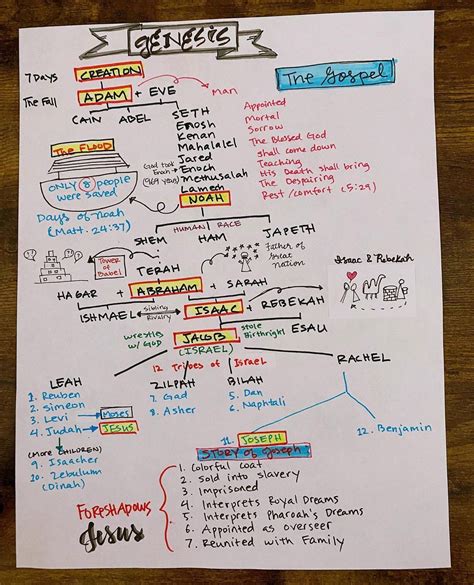 GENESIS
7 Days CREATION
The Gospel
The Fall ADAM + EVE
Man
CAIN ABEL SETH Appointed
Enosh Mortal
Kenan Sorrow
Mahalalel The Blessed God
Jared shall come down
Enoch Teaching
Methusalah His Death shall bring
Lamech The Despairing
NOAH Rest/comfort (5:29)
The FLOOD
God took
Enoch
(969 years)
ONLY 8 people
were saved
Days of Noah
(Matt. 24:37)
HUMAN RACE
SHEM HAM JAPETH
Tower of
Babel
TERAH
Father of
Great
Nation
Isaac & Rebekah
HAGAR + ABRAHAM + SARAH
ISHMAEL Sibling
Rivalry ISAAC + REBEKAH
wrestles
w/ GOD JACOB stole
Birthright ESAU
(ISRAEL)
12 Tribes of Israel
RACHEL
LEAH ZILPAH BILAH
1. Reuben 7. Gad 5. Dan
2. Simeon 8. Asher 6. Naphtali
3. Levi Moses
4. Judah JESUS
(More CHILDREN)
9. Isaacher
10. Zebulum
(Dinah)
11. JOSEPH 12. Benjamin
STORY of Joseph
1. Colorful Coat
2. Sold into slavery
3. Imprisoned
4. Interprets Royal Dreams
5. Interprets Pharoah's Dreams
6. Appointed as overseer
7. Reunited with Family
FORESHADOWS
Jesus